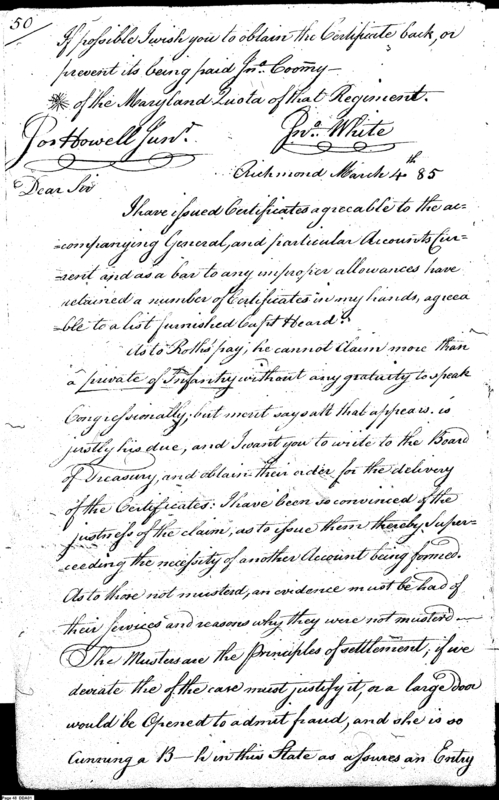 50
If possible I wish you to obtain the Certificate back, or
prevent its being paid Jno. Coomy—
of the Maryland Quota of that Regiment.
Jos Howell Junr.
Jno. White
Richmond March 4th 85
Dear Sir
I have issued Certificates agreeable to the ac-
-companying General, and particular Accounts Cur-
-rent and as a bar to any improper allowances have
retained a number of Certificates in my hands, agreea
ble to a list furnished Capt Heard.
As to Rolls pay, he cannot Claim more than
a private of Infantry without any gratuity to speak
Congressionally; but merit says all that appears is
justly his due, and I want you to write to the Board
of Treasury, and obtain their order for the delivery
of the Certificates: I have been so convinced of the
justness of the claim, as to issue them thereby super-
-ceeding the necessity of another Account being formed.
As to those not musterd, an evidence must be had of
their services and reasons why they were not musterd—
The Musters are the principles of settlement; if we
deviate the of the case must justify it, or a large door
would be Opened to admit fraud, and she is so
Cunning a B—h in this State as assures an Entry
Page 48 DDA01